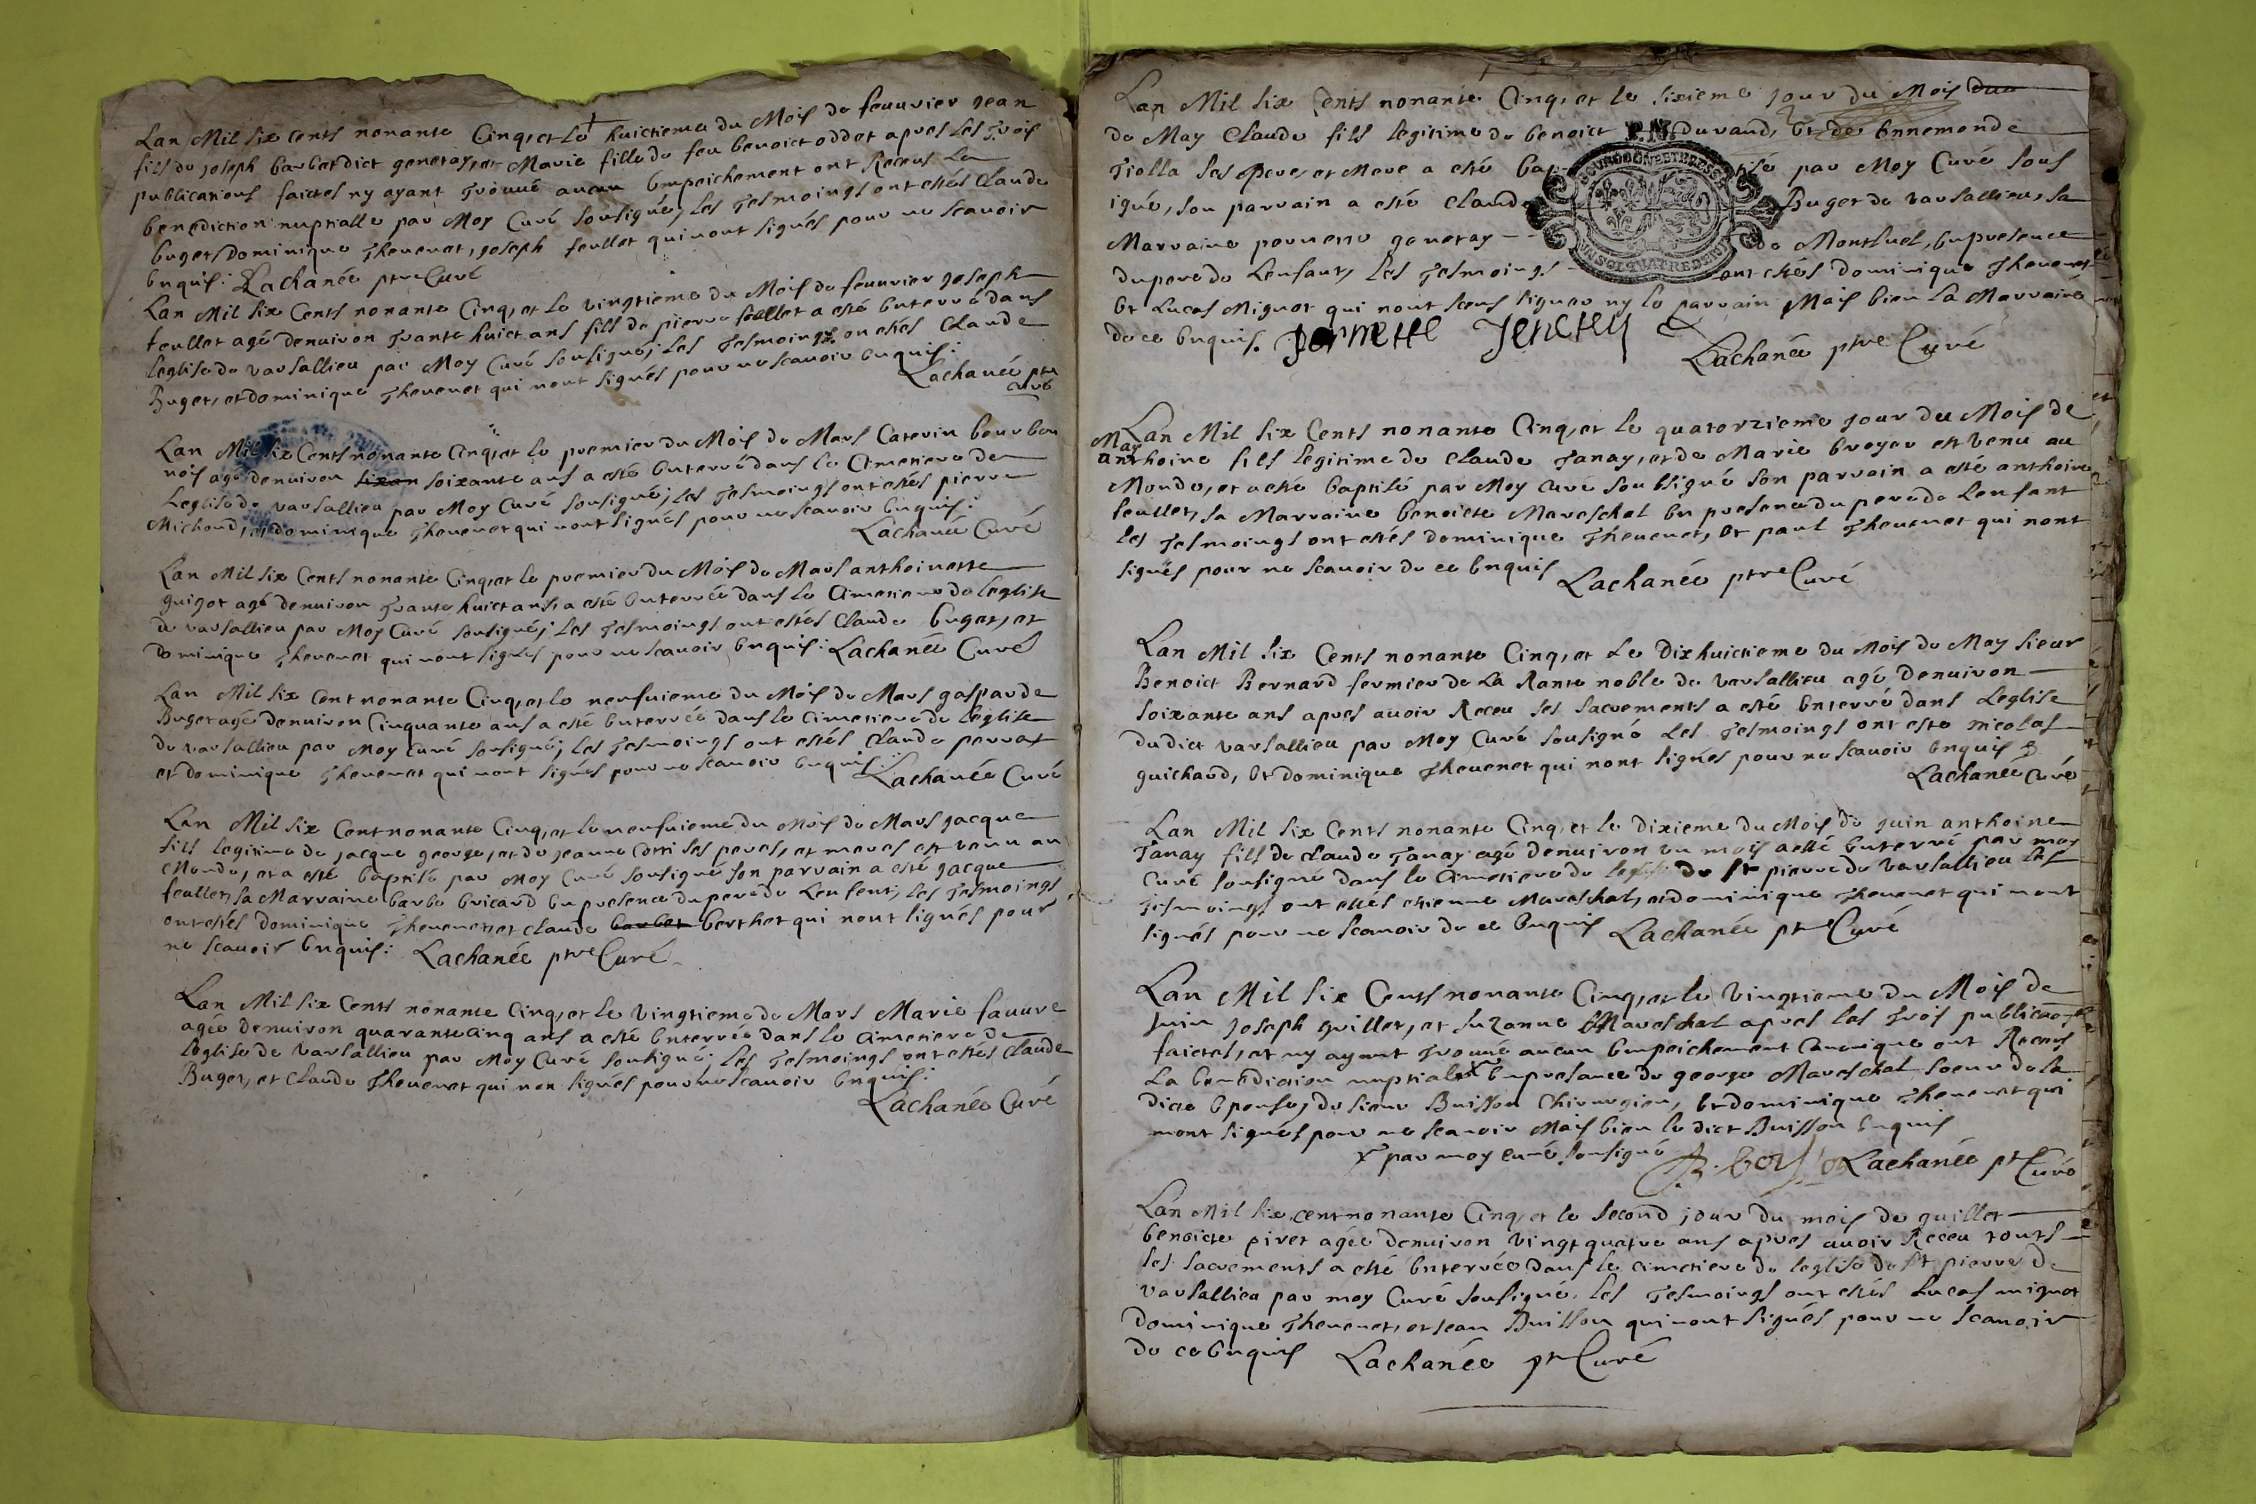 Lan Mil six cents nonante Cinq, et le huictieme du Mois de feuurier Jean
fils de joseph barbet dict generay, et Marie fille de feu benoict oddet apres les Trois
publications faictes ny ayant Trouué aucun Empeichement ont Receus La
benediction nuptialle par Moy Curé sousigné, les Tesmoings ont estés Claude
buget, Dominique Theuenet, joseph feullet qui nont signés pour ne scauoir
Enquis: Lachanée ptre Curé
Lan Mil six Cents nonante Cinq, et le vingtieme du Mois de feuurier joseph
feullet agé denuiron Trante huict ans fils de pierre feullet a esté Enterré dans
leglise de varsallieu par Moy Curé sousigné; les Tesmoings on estés Claude
Buget, et dominique Theuenet qui nont signés pour ne scauoir Enquis:
Lachanée ptre
Curé
Lan Mil six Cents nonante Cinq, et le premier du Mois de Mars Caterin bourbon
nois agé denuiron sixan soixante ans a esté Enterré dans le Cimetiere de
Leglise de varsallieu par Moy Curé sousigné; les Tesmoings ont estés pierre
Michoud, et dominique Theuenet qui nont signés pour ne scauoir Enquis:
Lachanée Curé
Lan Mil six Cents nonante Cinq, et le premier du Mois de Mars anthoinette
guigot agé denuiron Trante huict ans, a esté Enterrée dans le Cimetiere de leglise
de varsallieu par Moy Curé sousigné; les Tesmoings ont estés Claude buget, et
dominique Theuenet qui nont signés pour ne scauoir Enquis: Lachanée Curé
Lan Mil six Cent nonante Cinq, et le neufuieme du Mois de Mars gasparde
Buget agée denuiron Cinquante ans a esté Enterrée dans le Cimetiere de leglise
de varsallieu par Moy Curé sousigné; les Tesmoings ont estés Claude perrat
et dominique Theuenet qui nont signés pour ne scauoir Enquis:
Lachanée Curé
Lan Mil six Cent nonante Cinq, et le neufuieme du Mois de Mars jacque
fils legitime de jacque george, et de jeanne Corri ses peres, et meres est venu au
Monde, et a esté baptisé par Moy Curé sousigné son parrain a esté jacque
feullet, sa Marraine barbe bricard En presence du pere de Lenfent, les Tesmoings
ont estés dominique Theuenet, et claude barbet berthet qui nont signés pour
ne scauoir Enquis: Lachanée ptre Curé
Lan Mil six Cents nonante Cinq, et le vingtieme de Mars Marie fauure
agée denuiron quarante Cinq ans a esté Enterrée dans le Cimetiere de
leglise de varsallieu par Moy Curé sousigné; les Tesmoings ont estés Claude
Buget, et Claude Theuenet qui non signés pour ne scauoir Enquis:
Lachanée Curé
Lan Mil six Cents nonante Cinq, et le sixieme jour du Mois
de May Claude fils legitime de benoict durand, Et de Ennemonde
Tiolla ses pere, et Mere a esté bap tisé par Moy Curé sous
igné, son parrain a esté Claude Buget de varsallieu, sa
Marraine perneste generay de Montluel, En presence
du pere de Lenfant, les Tesmoings ont estés dominique Theuenet
Et Lucas Mignot qui nont sceus signer ny le parrain Mais bien la Marraine
de ce Enquis. pernette
Lachanée ptre Curé
Lan Mil six Cents nonante Cinq, et le quatorzieme jour du Mois de
May
anthoine fils legitime de Claude Tanay, et de Marie broyer est venu au
Monde, et a esté baptisé par Moy Curé soubsigné son parrain a esté anthoine
feullet, sa Marraine benoicte Mareschal En presence du pere de lenfant
les Tesmoings ont estés dominique Theuenet, Et paul Theuenet qui nont
signés pour ne scauoir de ce Enquis Lachanée ptre Curé
Lan Mil six Cents nonante Cinq, et Le Dixhuictieme du Mois de May sieur
Benoict Bernard fermier de La Rante noble de varsallieu agé denuiron
soixante ans apres auoir Receu ses sacrements a esté Enterré dans Leglise
dudict varsallieu par Moy Curé sousigné Les Tesmoings ont esté nicolas
guichard, Et dominique Theuenet qui nont signés pour ne scauoir Enquis
Lachanée Curé
Lan Mil six Cents nonante Cinq, et le dixieme du Mois de juin anthoine
Tanay fils de claude Tanay agé denuiron un mois a esté Enterré par moy
Curé sousigné dans le Cimetiere de leglise de st pierre de varsallieu les
Tesmoings ont estés etienne Mareschal, et dominique Theuenet qui nont
signés pour ne scauoir de ce Enquis Lachanée ptre Curé
Lan Mil six Cents nonante Cinq, et le vingtieme du Mois de
juin joseph guillet, et suzanne Mareschal apres les Trois publications
faictes, et ny ayant Trouué aucun Empeichement Canonique ont Receus
La benediction nuptiale x En presance de george Mareschal soeur de la
dicte Epouse, de sieur Buisson Chirurgien, Et dominique Theuenet qui
nont signés pour ne scauoir Mais bien le dict Buisson Enquis
x par moy curé sousigné Lachanée ptre Curé
Lan Mil six cent nonante Cinq, et le second jour du mois de juillet
benoicte piret agée denuiron vingt quatre ans apres auoir Receu touts
les sacrements a esté Enterrée dans le cimetiere de leglise de st pierre de
varsallieu par moy Curé sousigné. les Tesmoings ont estés Lucas mignot
Dominique Theuenet, et jean Buisson qui nont signés pour ne scauoir
de ce Enquis Lachanée ptre Curé